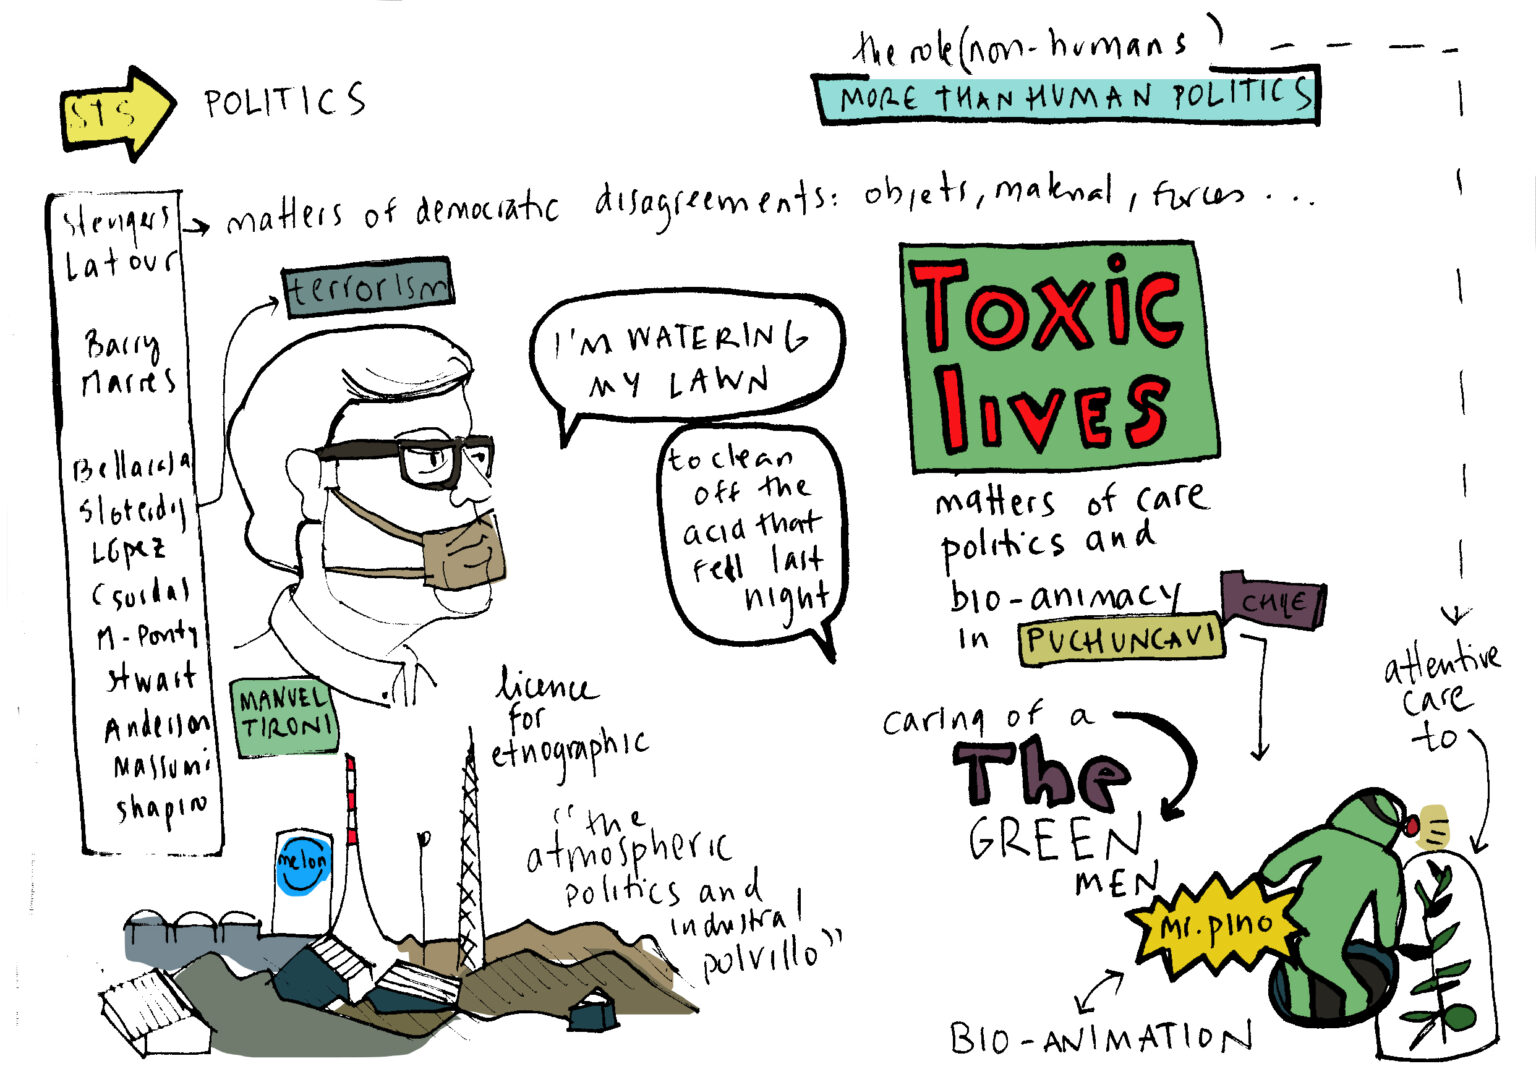 the role (non-humans)
STS
POLITICS
MORE THAN HUMAN POLITICS
Stengers
Latour
Barry
Marres
Sloterdij
López
M-Ponty
Stwart
Anderson
Massumi
Shapiro
matters of democratic disagreements: objets, material, forces ...
terrorism
I'M WATERING
MY LAWN
to clean
off the
acid that
fell last
night
TOXIC
LIVES
matters of care
politics and
bio-animacy
in PUCHUNCAVI
CHILE
MANUEL
TIRONI
licence
for
etnographic
"the
atmospheric
politics and
industrial
polvillo"
melon
caring of a
The
GREEN
MEN
attentive
care
to
Mr. pino
BIO-ANIMATION